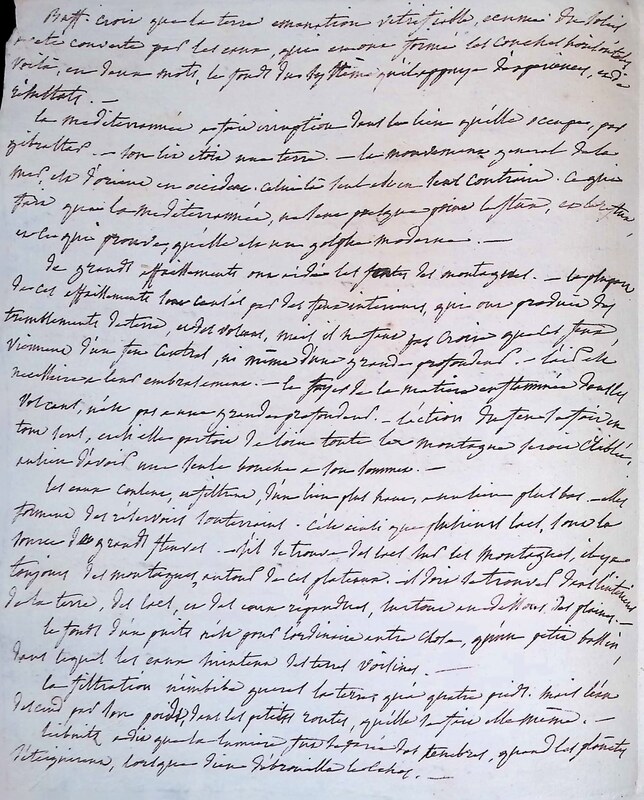 Buff. croit que la terre emanation vitrifiable, ecumée du soleil
a été couverte par les eaux, que en ont formé les couches horisontales
voilà, en deux mots, le fonds du systême qu'il appuye d'expériences, et de
résultats. —
La mediterrannée a fait irruption dans le lieu qu'elle occupe, par
gibraltar — son lit etoit une terre. — le mouvement general de la
mer, est d'orient en occident. celui là seul est en sens contraire. Ce qui
fait que la mediterrannée, a
et ce qui prouve, qu'elle est un golphe moderne. —
de grands affaissements ont aidé les des montagnes. — la plupart
de ces affaissements sont causés par des feux interieurs, qui ont produit des
tremblements de terre, et des volcans, mais il ne faut pas croire que ces feux,
viennent d'un feu central, ni même d'une grande profondeur. — l'air est
necessaire a leur embrasement. — le foyer de la matiere enflammée dans les
volcans, n'est pas a une grande profondeur. — l'action du feu se fait en
tout sens, et si elle partoit de loin toute la montagne seroit
au lieu d'avoir une seule bouche a son sommet. —
les eaux coulent, et filtrent, d'un lieu plus haut, a un lieu plus bas — elles
forment des réservoirs souterreins. C'est ainsi que plusieurs lacs, sont la
source de grands fleuves. — s'il se trouve des lacs sur les montagnes, il y a
toujours des montagnes, autour de ces plateaux. — il doit se trouver dans l'intérieur
de la terre, des lacs, et des eaux repandues, surtout au dessous des plaines. —
le fonds d'un puits n'est pour l'ordinaire autre chose, qu'un petit bassin,
dans lequel les eaux suintent des terres voisines. —
la filtration n'imbibe gueres la terre qu'a quatre pieds. mais l'eau
descend par son poids, dans les petites routes, qu'elle se fait elle même. —
Leibnitz a dit que la lumiere fut separée des tenebres, quand les planetes
s'éteignirent, lorsque dieu débrouilla le cahos. —